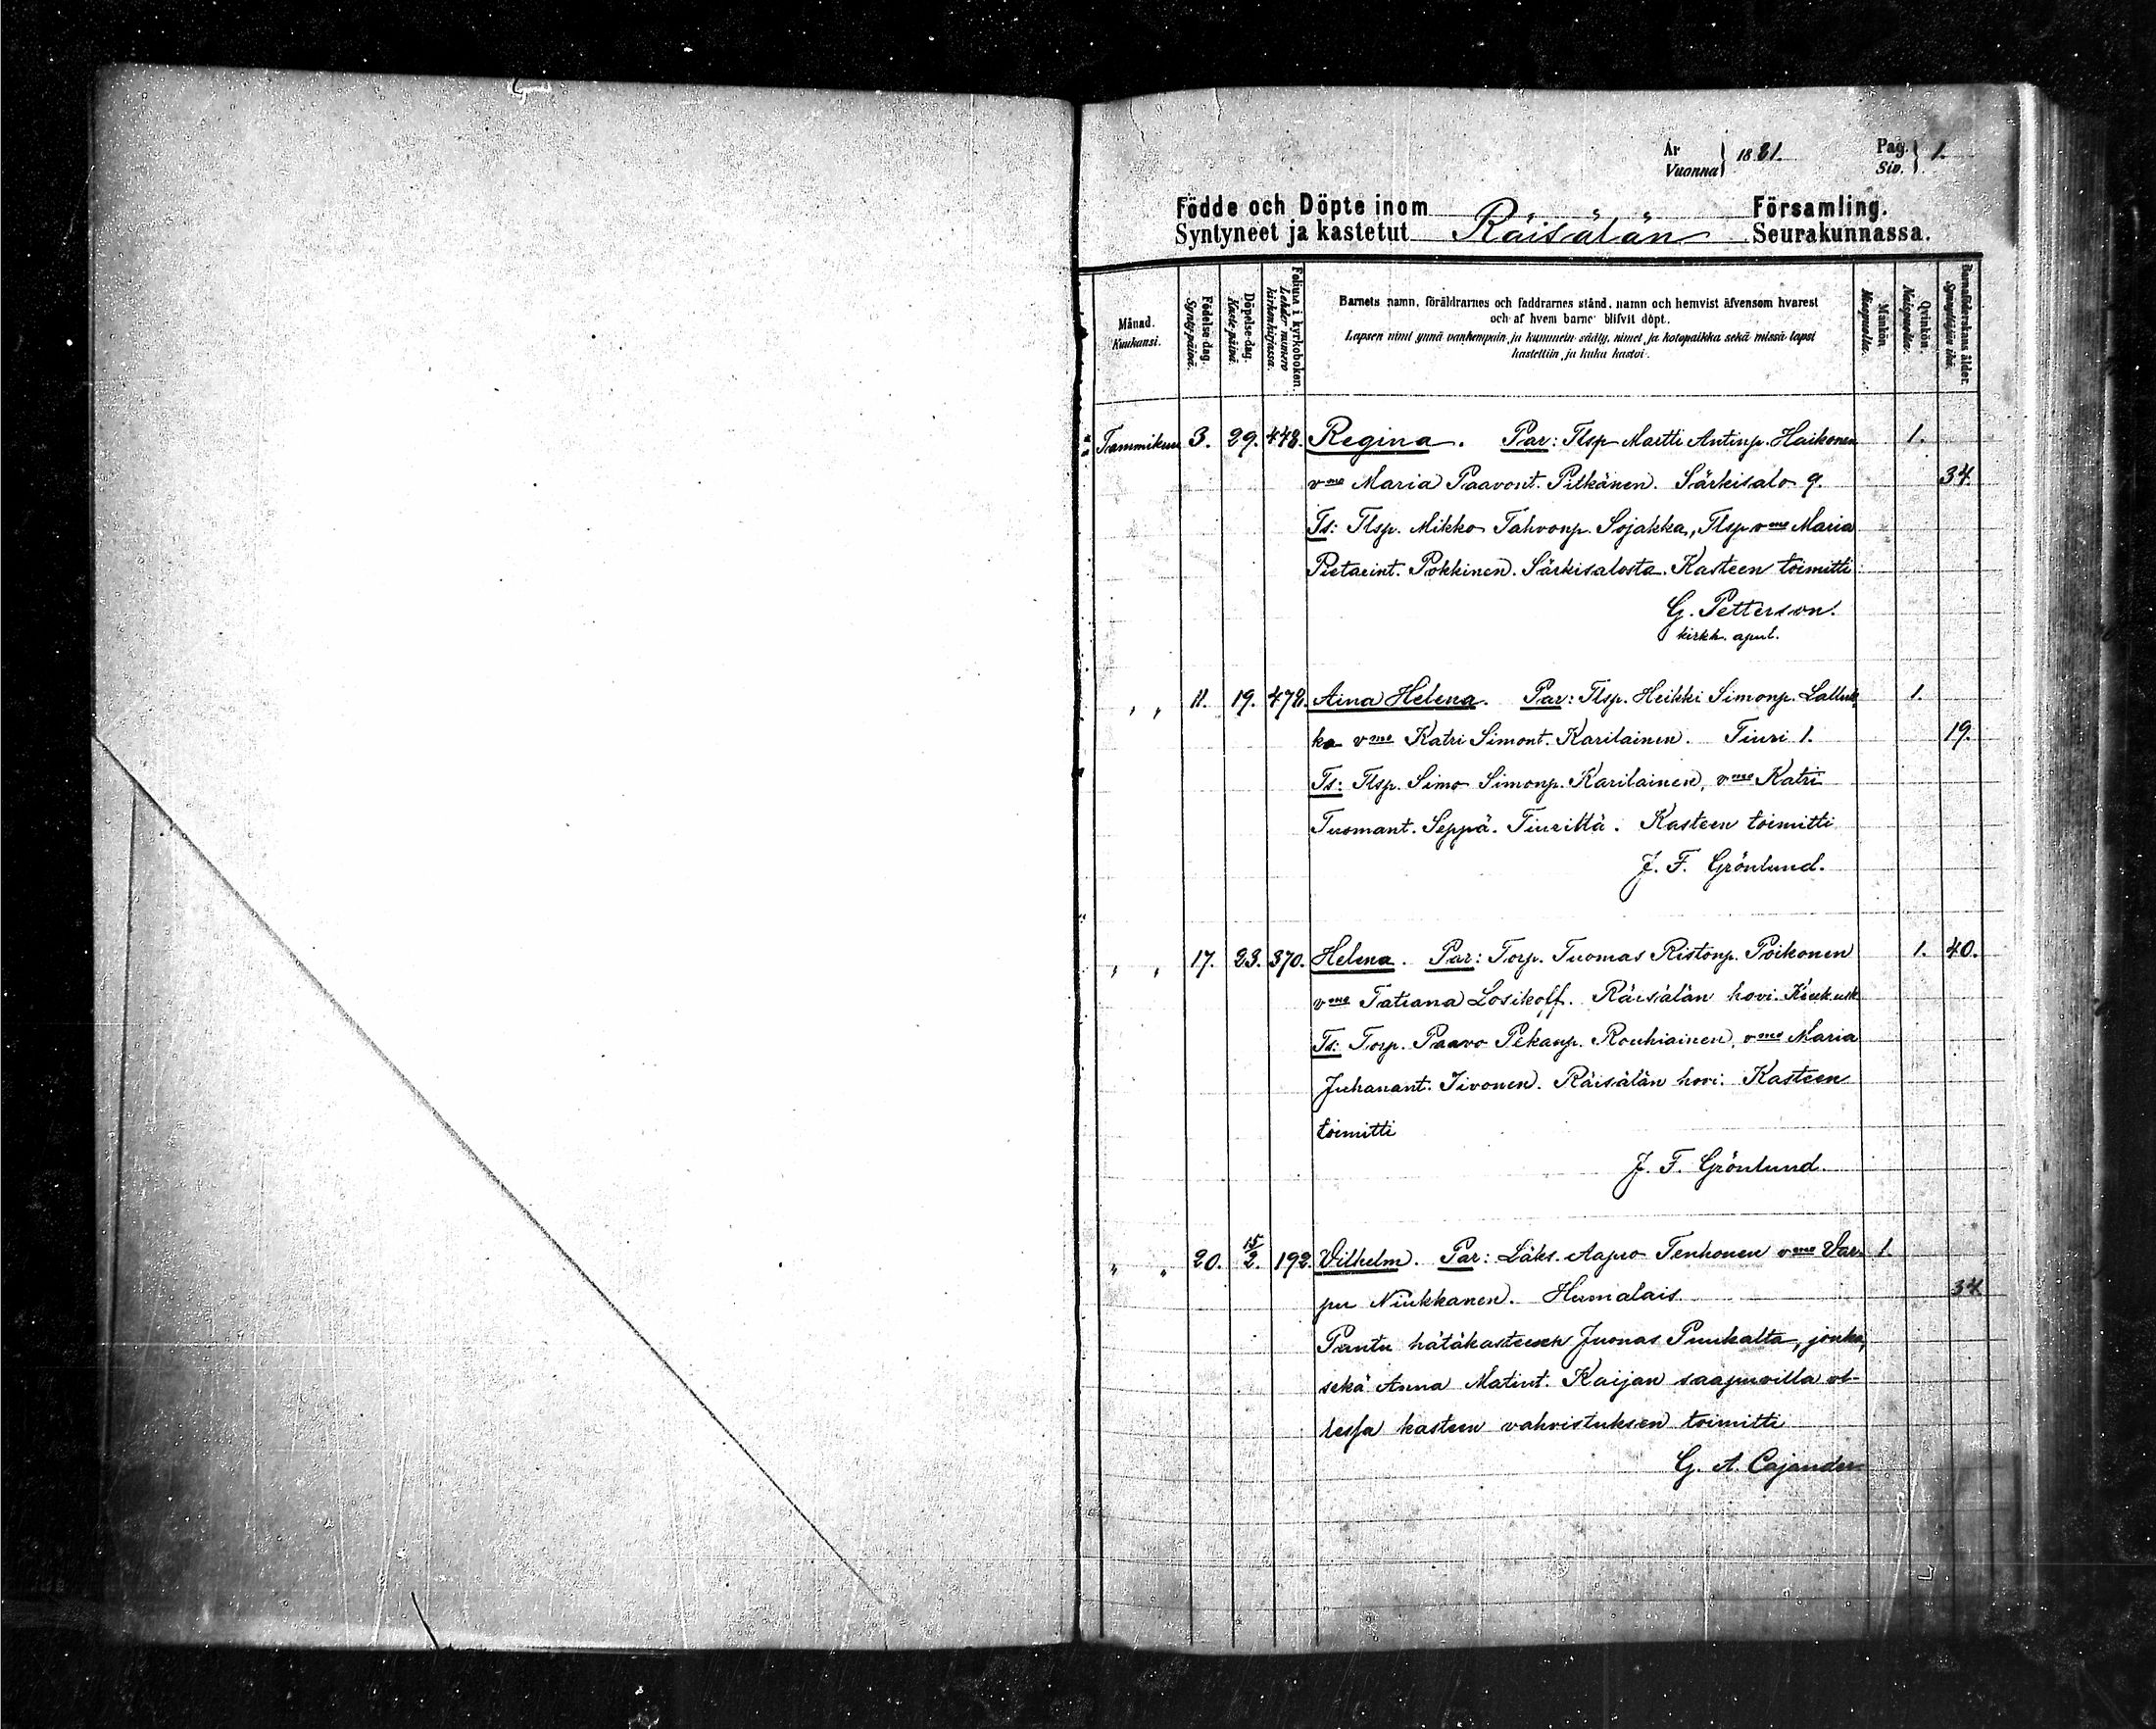 År
Vuonna } 1881.
Pag.
Siv. } 1.
Födde och Döpte inom
Syntyneet ja kastetut
Räisälän
Församling.
Seurakunnassa.
Månad.
Kuukausi.
Födelse-dag.
Syntypäivä.
Döpelse-dag.
Kaste-päivä.
Folium i kyrkoboken.
Lehden numero kirkonkirjassa.
Barnets namn, föräldrarnes och faddrarnes stånd, namn och hemvist äfvensom hvarest
och af hvem barnet blifvit döpt.
Lapsen nimi ynnä vanhempain ja kummein sääty, nimet ja kotopaikka sekä missä lapsi
kastettiin ja kuka kastoi.
Mankön.
Miespuolia.
Qvinkön.
Naispuolia.
Barnaföderskans ålder.
Synnyttäjän ikä.
Tammikuu 3. 29. 448. Regina. Par: Tlsp Martti Antinp. Haikonen 1.
vmo Maria Paavont. Pitkänen. Särkisalo 9. 34.
Ts: Tlsp. Mikko Tahvonp. Sojakka, Tlsp vmo Maria
Pietarint. Pokkinen. Särkisalosta. Kasteen toimitti
G. Petterson.
kirkh. apul.
" " 11. 19. 472. Aina Helena. Par: Tlsp. Heikki Simonp. Lalluk 1.
ka vmo Katri Simont. Karilainen. Tiuri 1. 19.
Ts: Tlsp. Simo Simonp. Karilainen, vmo Katri
Tuomant. Seppä. Tiurittä. Kasteen toimitti
J. F. Grönlund.
" " 17. 23. 370. Helena. Par: Torp. Tuomas Ristonp. Poikonen 1. 40.
vmo Tatiana Losikoff. Räisälän hovi.
Ts: Torp. Paavo Pekanp. Rouhiainen, vmo Maria
Juhanant. Iivonen. Räisälän hovi. Kasteen
toimitti
J. F. Grönlund.
" " 20. 15/2. 192. Vilhelm. Par: Läks. Aapro Tenhonen vmo Var- 1.
pu Niukkanen. Humalais 34
Pantu hätäkasteesen Juonas Puukalta, jonka,
sekä Anna Matint. Kaijan saapuvilla ol-
lessa kasteen vahvistuksen toimitti
G. A. Cajander